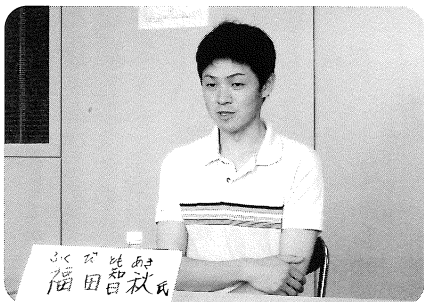 ふくだ ともあき
福田智秋氏